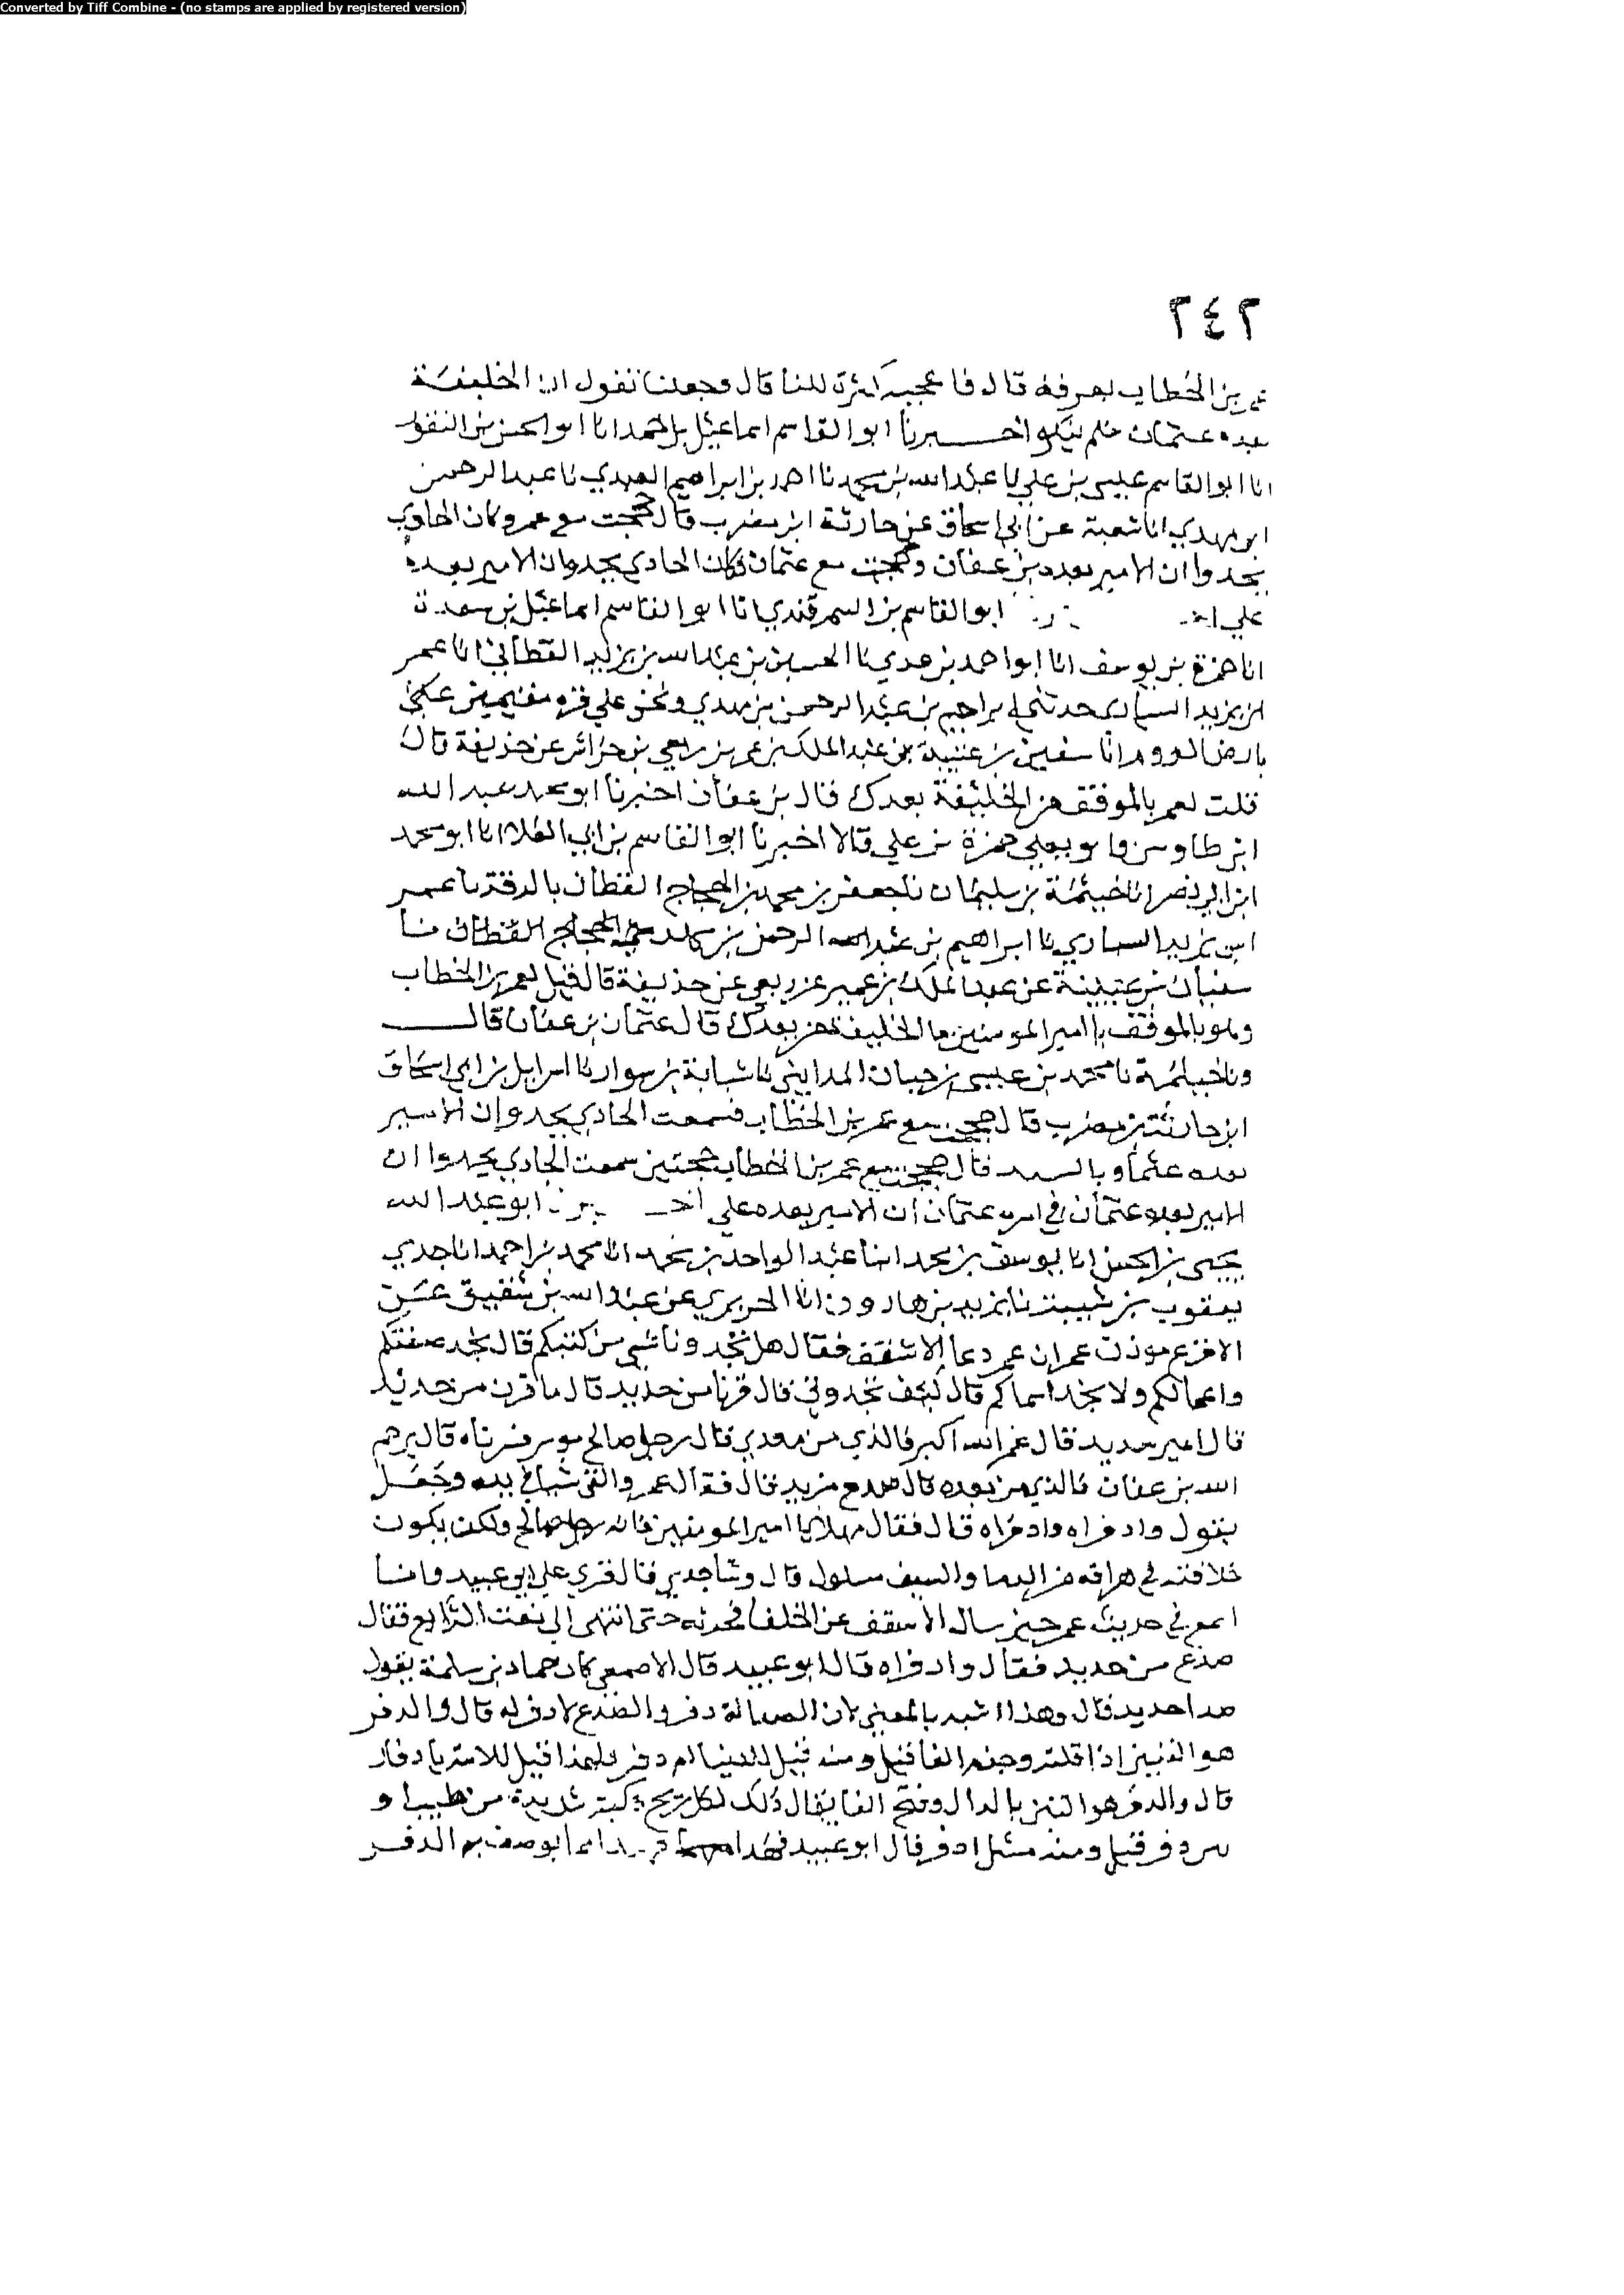 Converted by Tiff Combine - (no stamps are applied by registered version)
٢٤٢
بن الخطاب بعرفة قال فاعجبه كثرة للنا قال وجعلنا نقول ان الخليفة
بعده عثمان فلم ابو القاسم اسماعيل بن احمد انا ابو الحسين بن النقور
انا ابو القاسم عيسى بن علي نا عبد الله بن محمد نا احمد بن ابراهيم العبدي نا عبد الرحمن
ابن مهدي انا شعبة عن ابي اسحاق عن حارثة ابن مضرب قال حججت مع عمر وكان الحادي
يحدوا ان الامير بعده بن عفان وحججت مع عثمان فكان الحادي يحدوا ان الامير بعده
علي ابو القاسم بن السمرقندي انا ابو القاسم اسماعيل بن مسعدة
انا حمزة بن يوسف انا ابو احمد بن عدي نا الحسين بن عبد الله بن يزيد القطان انا عمر
بن يزيد السياري حدثني ابراهيم بن عبد الرحمن بن مهدي ونحن على مقيمين
بارض الروم انا سفين بن عيينة عن عبد الملك بن عمير عن ربعي بن حراش عن حذيفة قال
قلت لعمر بالموقف من الخليفة بعدك قال بن عفان اخبرنا ابو محمد عبد الله
ابن طاوس وابو يعلي حمزة بن علي قالا اخبرنا ابو القاسم بن ابي العلا انا ابو محمد
ابن ابي نصر انا خيثمة بن سليمان نا جعفر بن محمد بن الحجاج القطان بالرقة نا عمر
ابن يزيد السياري نا ابراهيم بن عبد الرحمن بن الحجاج القطان نا
سفيان بن عيينة عن عبد الملك بن عمير عن ربعي عن حذيفة قال قيل لعمر بن الخطاب
وهو بالموقف يا امير المومنين ما الخليفة من بعدك قال عثمان بن عفان قال
ونا خيثمة نا محمد بن عيسى بن حيان المدايني نا شبابة بن سوار نا اسرايل بن ابي اسحاق
ابن حارثة بن مضرب قال حججت مع عمر بن الخطاب فسمعت الحادي يحدو ان الامير
بعده عثمان وبا قال حججت مع عمر بن الخطاب حجتين سمعت الحادي يحدوا ان
الامير بعده عثمان في امرة عثمان ان الامير بعده علي اخـ ـبرنا ابو عبد الله
يحيى بن الحسن انا يوسف بن محمد انبا عبد الواحد بن محمد انا محمد بن احمد انا جدي
يعقوب بن شيبة نا يزيد بن هارون انا الجريري عن عبد الله بن شقيق عن
الاقرع موذن عمر ان عمر دعا الاسقف فقال هل تجدونا شي من كتبكم قال نجد صفتكم
واعمالكم ولا نجد اسماكم قال كيف تجدوني قال قرنا من حديد قال ما قرن من حديد
قال امير شديد قال عمر الله اكبر فالذي من بعدي قال رجل صالح يوثر قرباه قال يرحم
الله بن عفان فالذي من بعده قال صدع من حديد قال فقال عمر والقى شيا في يده وجعل
يقول وادفراه وادفراه قال فقال مهلا يا امير المومنين فانه رجل صالح ولكن يكون
خلافته في هراقة من الدما والسيف مسلول قال ونا جدي قال قري على ابو عبيد وانا
اسمع في حديث عمر حين سال الاسقف عن الخلفا فحدثه حتى انتهى الى نعت الرابع فقال
صدع من حديد فقال وادفراه قال ابو عبيد قال الاصمعي كان حماد بن سلمة يقول
صدا حديد قال وهذا اشبه بالمعنى لان الصدا له دفر والصدع لا دفر له قال والدفر
هو النتن اذا قلته وجزم الفا قيل ومنه قيل للدنيا ام دفر ولهذا قيل للامة يا دفار
قال والذفر هو النتن بالذال وفتح الفا يقال ذلك لكل ريح ذكية شديدة من طيب او
قيل ومنه مسك اذفر قال ابو عبيد فهذا ما يوصف به الدفر